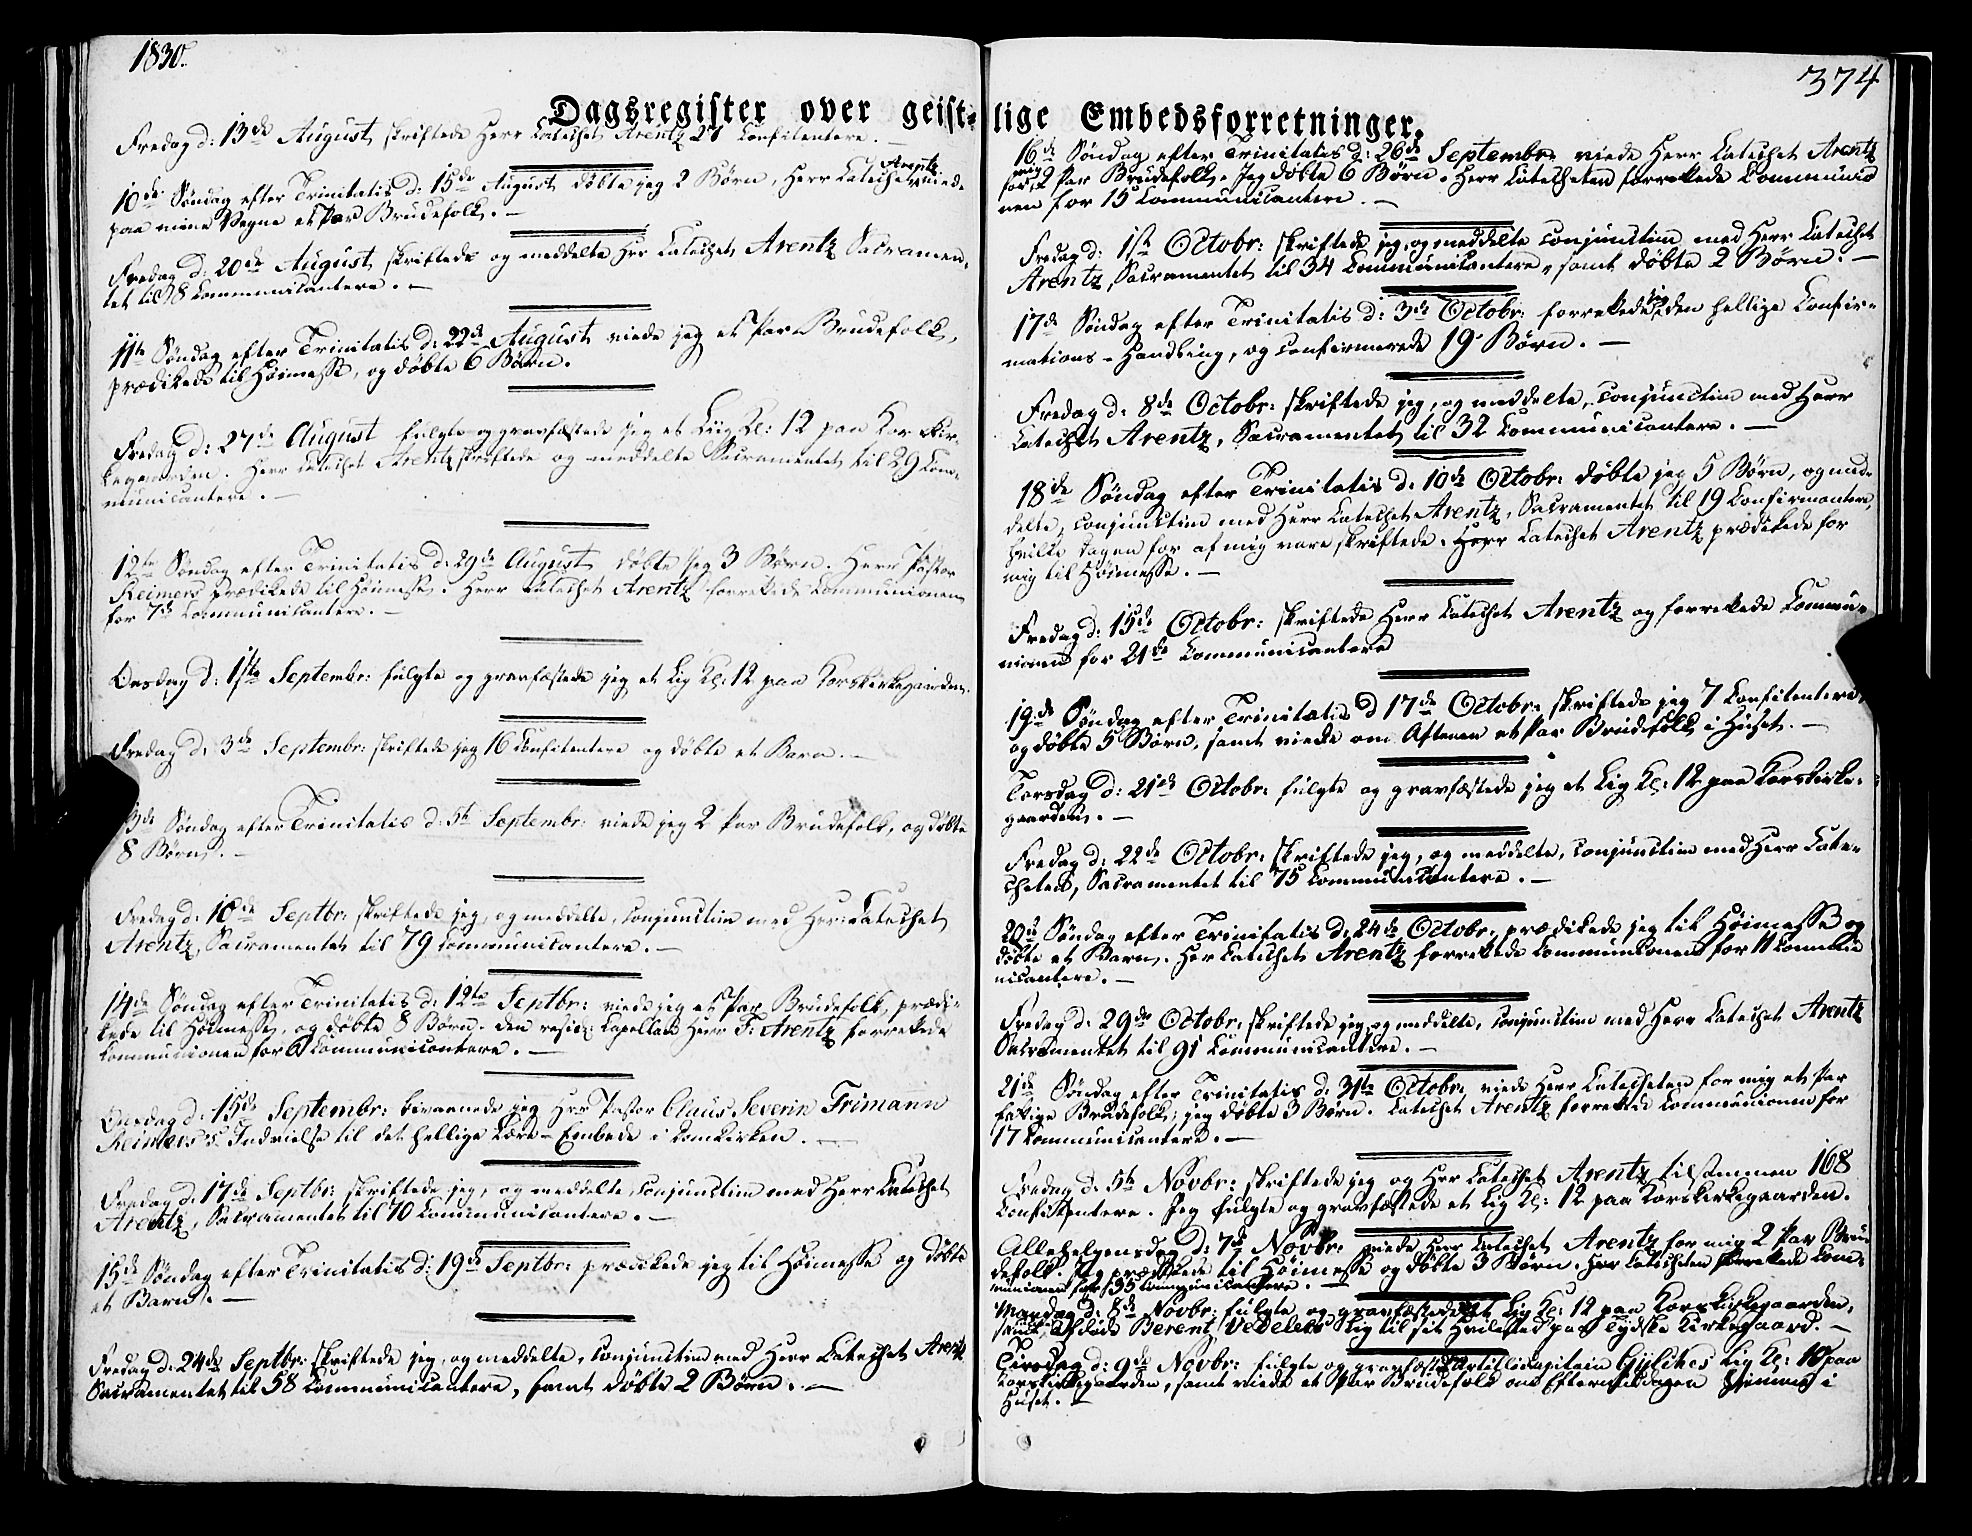 1830.
Dagsregister over geist-
Fredag d: 13de August, skriftede Herr Catechet Arentz 27 Confitentere.
10de Søndag efter Trinitatis d: 15de August døbte jeg 2 Børn, Herr Catechet Arentz viede
paa mine Vegne et Par Brudefolk.
Fredag d: 20de August, skriftede og meddelte Hr Catechet Arentz Sacramen-
tet til 38 Communicantere.
11te Søndag efter Trinitatis d: 22de August viede jeg et Par Brudefolk,
prædikede til Høimesse, og døbte 6 Børn.
Fredag d: 27de August fulgte og gravfæstede jeg et Liig Kl: 12 paa Korskir-
kegaarden. Herr Catechet Arentz skriftede og meddelte Sacramentet til 29 Com-
municantere.
12te Søndag efter Trinitatis d: 29de August døbte jeg 3 Børn. Herr Pastor
Reimers prædikede til Høimesse. Herr Catechet Arentz forrettede Communionen
for 7de Communicantere.
Onsdag d: 1ste Septembr: fulgte og gravfæstede jeg et Lig Kl: 12 paa Korskirkegaarden.
Fredag d: 3de Septembr: skriftede jeg 16 Confitentere og døbte et Barn.
13de Søndag efter Trinitatis d: 5te Septembr: viede jeg 2 Par Brudefolk, og døbte
8 Børn.
Fredag d: 10de Septbr: skriftede jeg, og meddelte, conjunctim med Herr Catechet
Arentz, Sacramentet til 79 Communicantere.
14de Søndag efter Trinitatis d: 12te Septbr: viede jeg et Par Brudefolk, prædi-
kede til Høimesse, og døbte 8 Børn. Den resid: Capellan Herr F. Arentz forrettede
Communionen for 6 Communicantere.
Onsdag d: 15de Septembr: bivaanede jeg Herr Pastor Claus Severin Frimann
Reimers's Indvielse til det hellige Lære-Embede i Domkirken.
Fredag d: 17de Septbr: skriftede jeg, og meddelte, conjunctim med Herr Catechet
Arentz, Sacramentet til 70 Communicantere.
15de Søndag efter Trinitatis d: 19de Septbr: prædikede jeg til Høimesse og døbte
et Barn.
Fredag d: 24de Septbr: skriftede jeg, og meddelte, conjunctim med Herr Catechet Arentz
Sacramentet til 58 Communicantere, samt døbte 2 Børn.
374
lige Embedsforretninger.
16de Søndag efter Trinitatis d: 26de Septembr: viede Herr Catechet Arentz
for mig 2 Par Brudefolk. Jeg døbte 6 Børn. Herr Catecheten forrettede Communio
nen for 15 Communicantere.
Fredag d: 1ste Octobr: skriftede jeg, og meddelte conjunctim med Herr Catechet
Arentz, Sacramentet til 34 Communicantere, samt døbte 2 Børn.
17de Søndag efter Trinitatis d: 3de Octobr: forrettede jeg den hellige Confir-
mations-Handling, og confirmerede 19 Børn.
Fredag d: 8de Octobr: skriftede jeg, og meddelte, conjunctim med Herr
Catechet Arentz, Sacramentet til 32 Communicantere.
18de Søndag efter Trinitatis d: 10de Octobr: døbte jeg 5 Børn, og med-
delte, conjunctim med Herr Catechet Arentz, Sacramentet til 19 Confirmantere,
hvilke Dagen for af mig vare skriftede. Herr Catechet Arentz prædikede for
mig til Høimesse.
Fredag d: 15de Octobr: skriftede Herr Catechet Arentz og forrettede Commu-
nionen for 21de Communicantere
19de Søndag efter Trinitatis d 17de Octobr: skriftede jeg 7 Confitentere,
og døbte 5 Børn, samt viede om Aftenen et Par Brudefolk i Huset.
Torsdag d: 21de Octobr: fulgte og gravfæstede jeg et Lig Kl: 12 paa Korskirke-
gaarden.
Fredag d: 22de Octobr: skriftede jeg, og meddelte, conjunctim med Herr Cate-
cheten, Sacramentet til 75 Communicantere.
20de Søndag efter Trinitatis d: 24de Octobr: prædikede jeg til Høimesse og
døbte et Barn. Herr Catechet Arentz forrettede Communionen for 11 Commu
nicantere.
Fredag d: 29de Octobr: skriftede jeg, og meddelte, conjunctim med Herr Catechet Arentz
Sacramentet til 91 Communicantere.
21de Søndag efter Trinitatis d: 31te Octobr: viede Herr Catecheten for mig et Par
fattige Brudefolk; jeg døbte 3 Børn. Catechet Arentz forrettede Communionen for
17 Communicantere.
Fredag d: 5te Novbr: skriftede jeg og Herr Catechet Arentz tilsammen 168
Confitentere. Jeg fulgte og gravfæstede et Lig Kl: 12 paa Korskirkegaarden.
Allehelgensdag d: 7de Novbr: viede Herr Catechet Arentz for mig 2 Par Bru-
defolk. Jeg prædikede til Høimesse og døbte 3 Børn. Herr Catecheten forrettede Com-
munionen for 35 Communicantere.
Mandag d: 8de Novbr: fulgte og gravfæstede et Lig Kl: 12 paa Korskirkegaarden,
samt Berent Vedelers Lig til sit Hvilested paa Tydske Kirkegaard.
Tirsdag d: 9de Novbr: fulgte og gravfæstede Lig Kl: 10 paa
Korskirkegaarden, samt viede et Par Brudefolk om Eftermiddagen hjemme i
Huset.